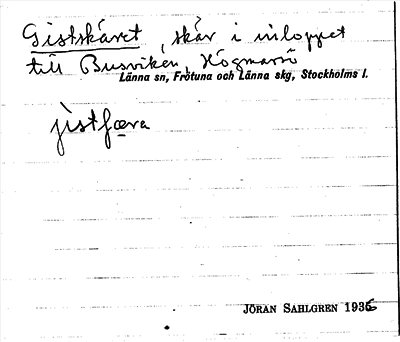 Gistskäret, skär i inloppet
till Busviken, Högmarsö
Länna sn, Frötuna och Länna skg, Stockholms l.
jistfæra
JÖRAN SAHLGREN 1936